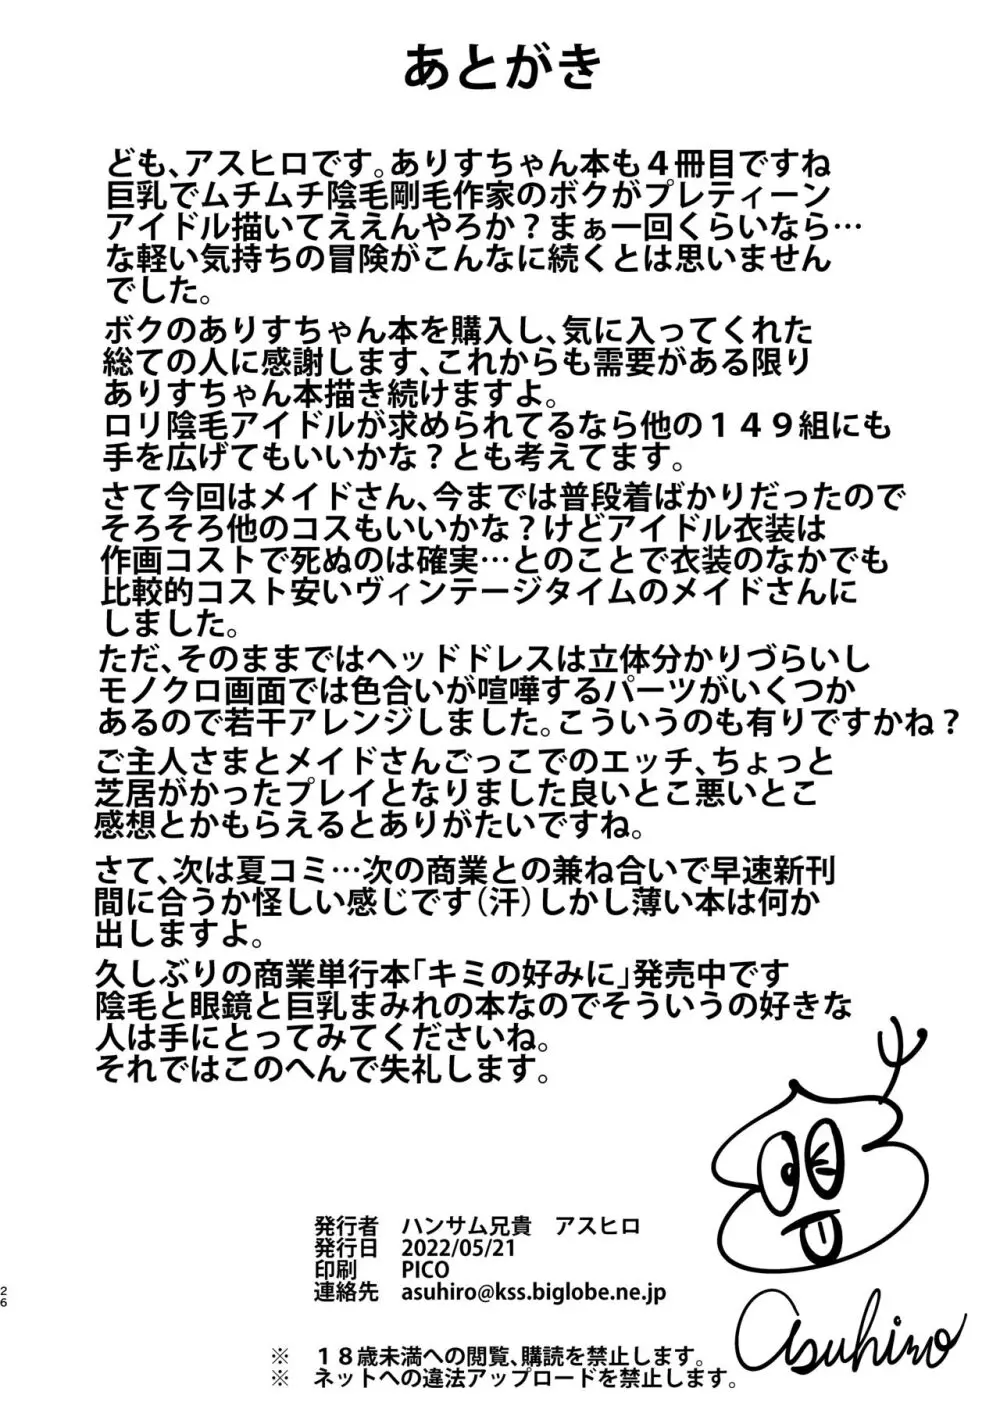 あとがき
ども、アスヒロです。ありすちゃん本も４冊目ですね
巨乳でムチムチ陰毛剛毛作家のボクがプレティーン
アイドル描いてええんやろか？まぁ一回くらいなら…
な軽い気持ちの冒険がこんなに続くとは思いません
でした。
ボクのありすちゃん本を購入し、気に入ってくれた
総ての人に感謝します、これからも需要がある限り
ありすちゃん本描き続けますよ。
ロリ陰毛アイドルが求められてるなら他の１４９組にも
手を広げてもいいかな？とも考えてます。
さて今回はメイドさん、今までは普段着ばかりだったので
そろそろ他のコスもいいかな？けどアイドル衣装は
作画コストで死ぬのは確実…とのことで衣装のなかでも
比較的コスト安いヴィンテージタイムのメイドさんに
しました。
ただ、そのままではヘッドドレスは立体分かりづらいし
モノクロ画面では色合いが喧嘩するパーツがいくつか
あるので若干アレンジしました。こういうのも有りですかね？
ご主人さまとメイドさんごっこでのエッチ、ちょっと
芝居がかったプレイとなりました良いとこ悪いとこ
感想とかもらえるとありがたいですね。
さて、次は夏コミ…次の商業との兼ね合いで早速新刊
間に合うか怪しい感じです（汗）しかし薄い本は何か
出しますよ。
久しぶりの商業単行本「キミの好みに」発売中です
陰毛と眼鏡と巨乳まみれの本なのでそういうの好きな
人は手にとってみてくださいね。
それではこのへんで失礼します。
発行者　ハンサム兄貴　アスヒロ
発行日　2022/05/21
印刷　PICO
連絡先　asuhiro@kss.biglobe.ne.jp
asuhiro
※　１８歳未満への閲覧、購読を禁止します。
※　ネットへの違法アップロードを禁止します。
26